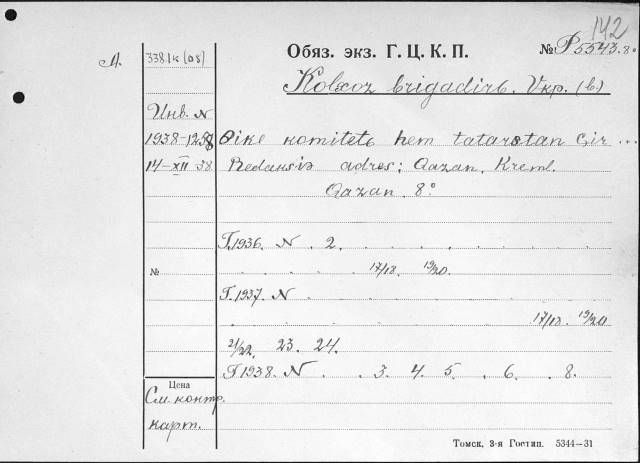 142
А. 338.1к(08) Обяз. экз. Г. Ц. К. П. № Р5543.8°
Kolxoz brigadirь. Vкp. (b.)
Инв. N
1938-1258 Өlke komitetь hem tatarstan Çir ...
14-XII 38 Redaksiә adres: Qazan, Kreml.
Qazan 8°
Г.1936. N . 2. . . . . . .
№ . . . . 17/18. 19/20.
Г.1937. N . . . . . . .
. . . . . . 17/18. 19/20
21/22. 23. 24.
Г.1938. N . . 3. 4. 5. . 6. . 8.
Цена
См. контр.
карт.
Томск, 3-я Гостип. 5344—31